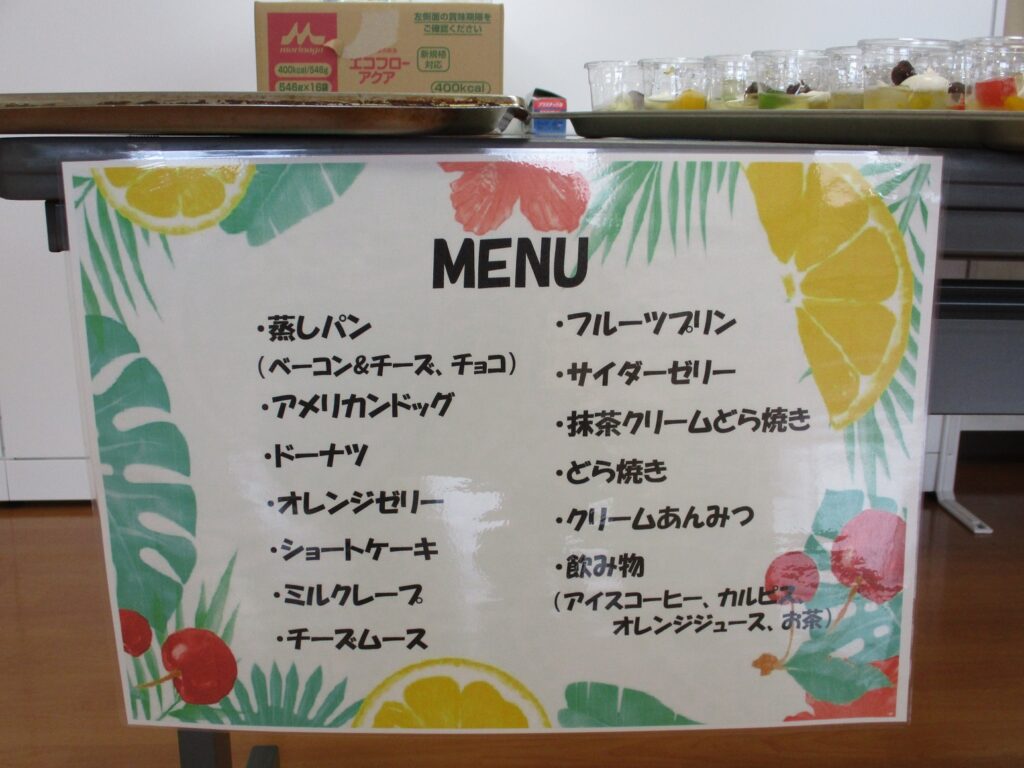 左側面の賞味期限を
ご確認ください
morinaga
エコフロー
アクア
新規格
対応
400kcal/546g
546g×16袋
(400kcal)
MENU
・蒸しパン
(ベーコン&チーズ、チョコ)
・アメリカンドッグ
・ドーナツ
・オレンジゼリー
・ショートケーキ
・ミルクレープ
・チーズムース
・フルーツプリン
・サイダーゼリー
・抹茶クリームどら焼き
・どら焼き
・クリームあんみつ
・飲み物
(アイスコーヒー、カルピス、
オレンジジュース、お茶)